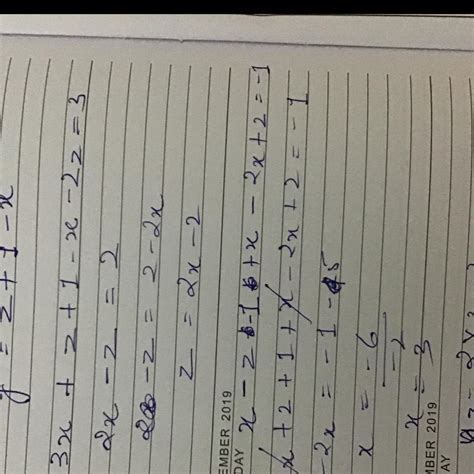 y = z + 1 - x
3x + z + 1 - x - 2z = 3
2x - z = 2
- z = 2 - 2x
z = 2x - 2
EMBER 2019
DAY
x - z - 1 + x - 2x + 2 = -1
x + 2 + 1 + x - 2x + 2 = -1
-2x = -1 - 5
x = -6
-2
x = 3
EMBER 2019
AY